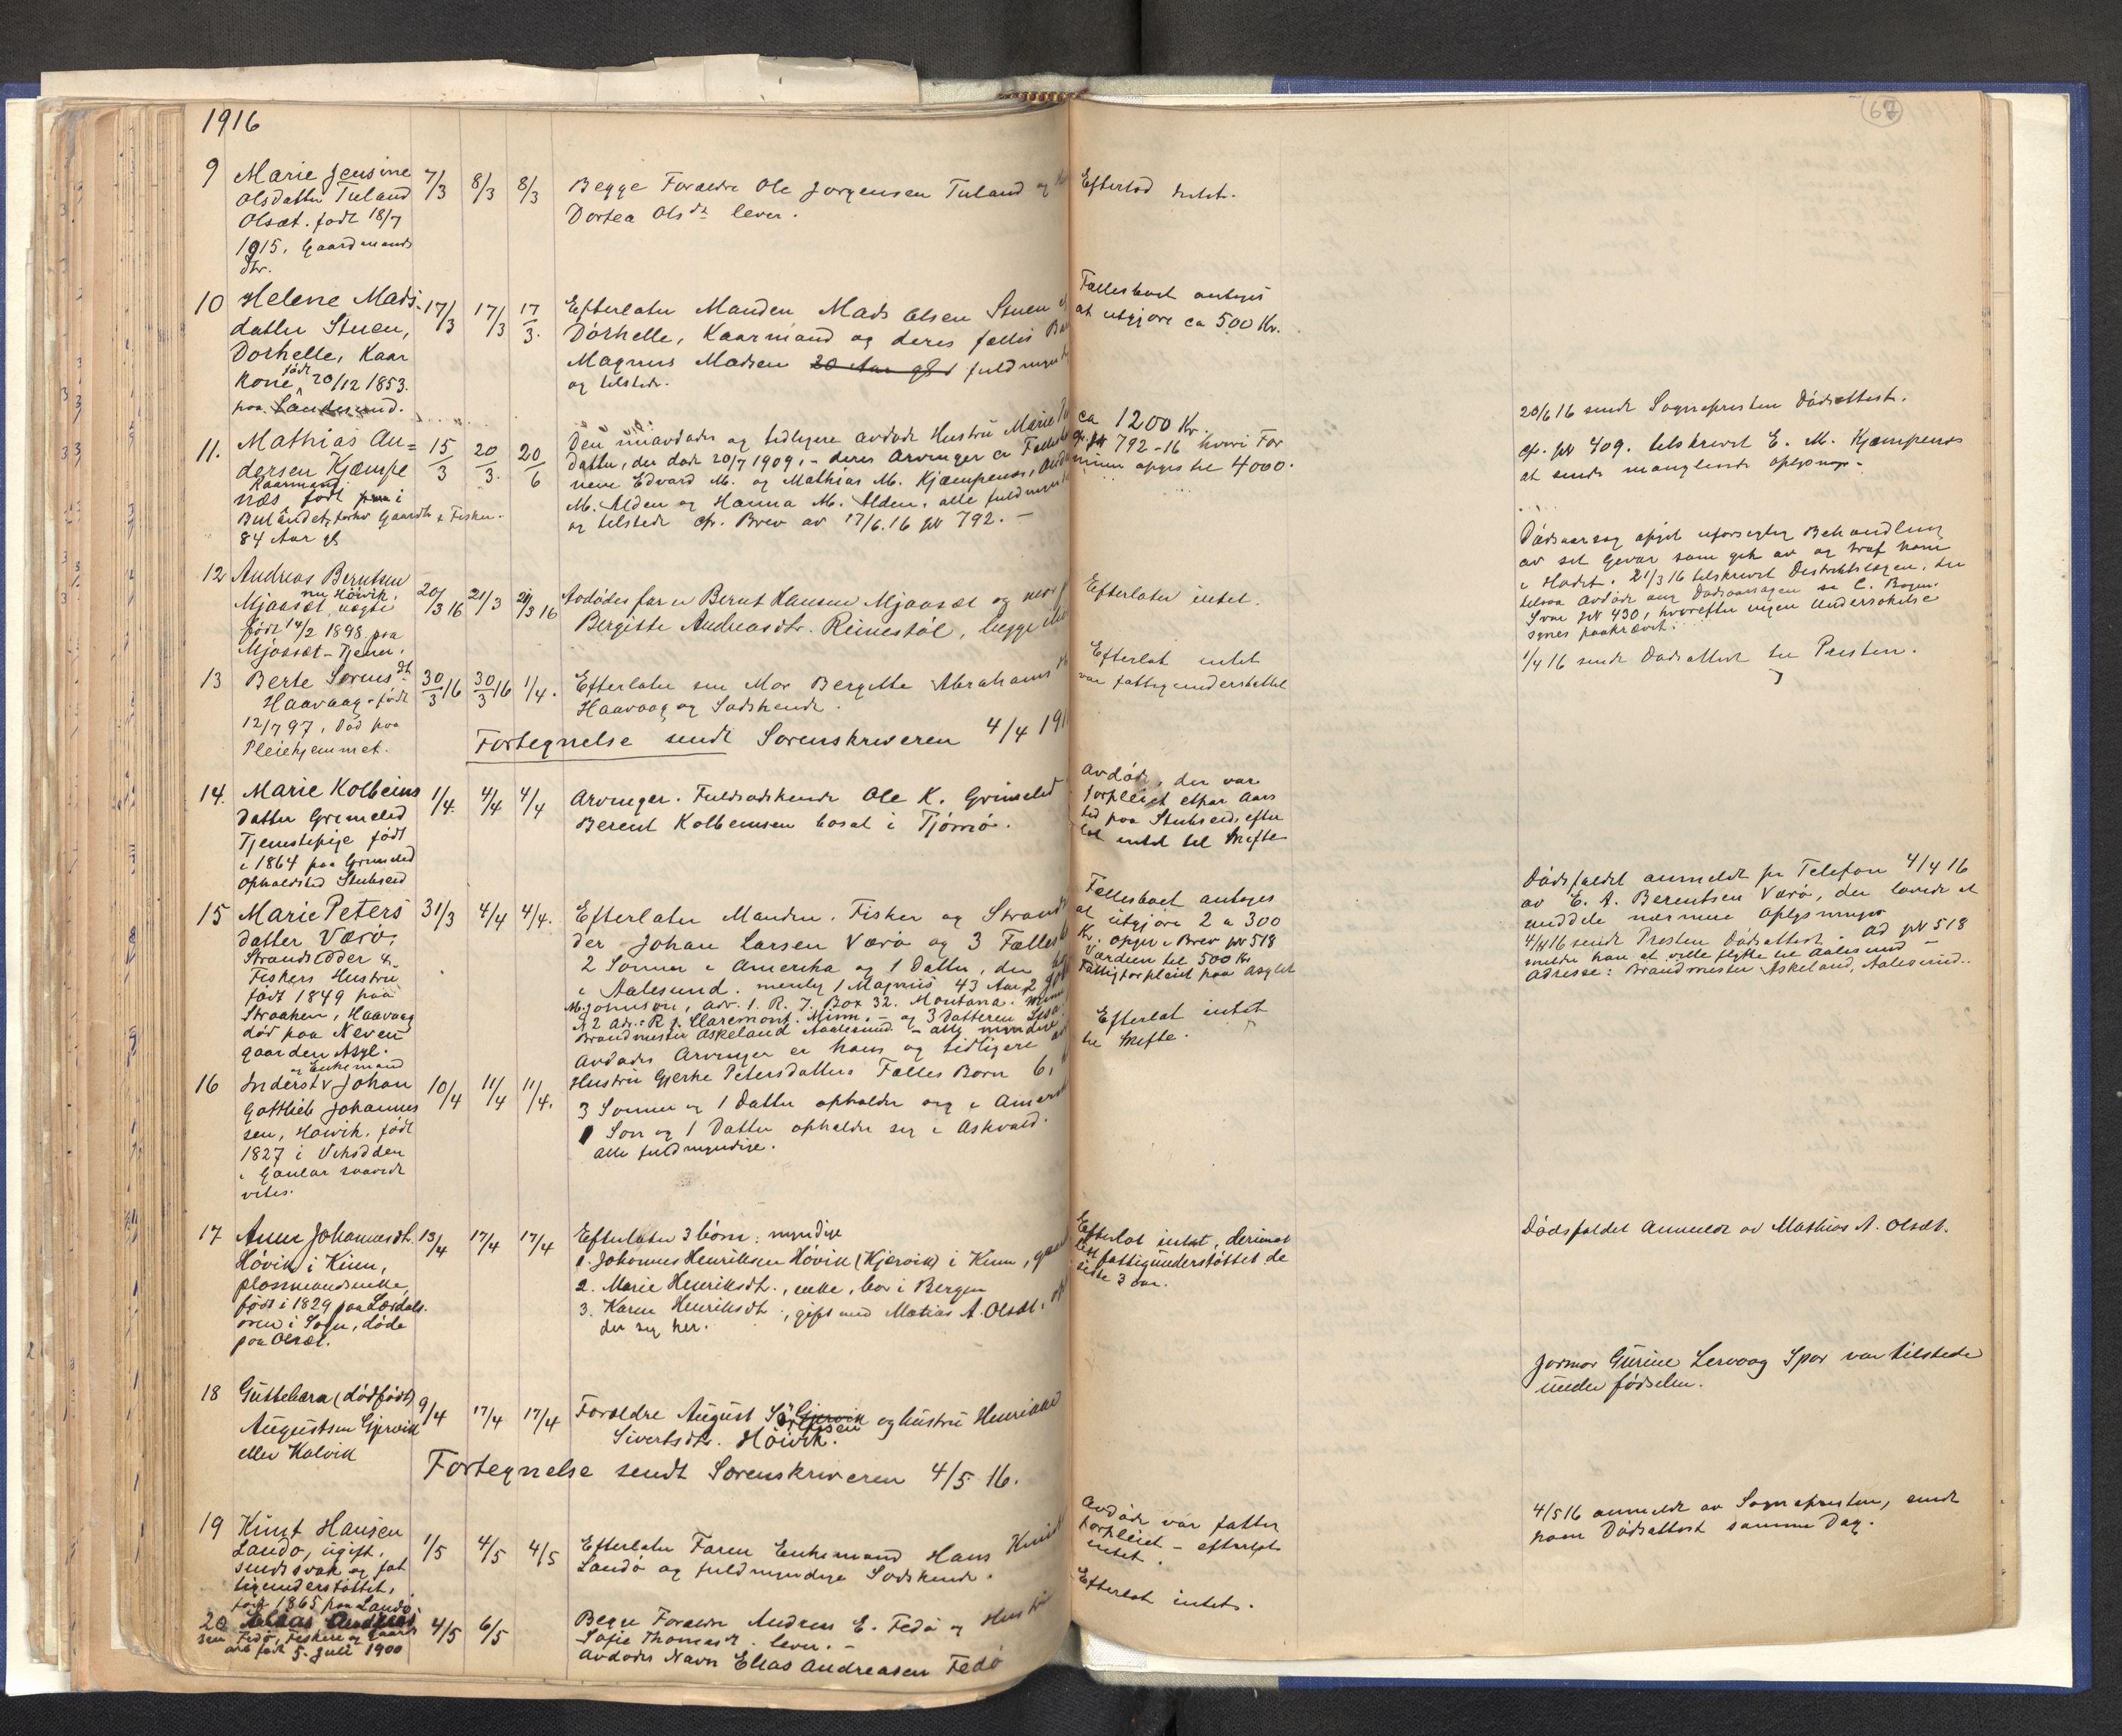 1916
67
9 Marie Jensine 7/3 8/3 8/3 Begge Forældre Ole Jørgensen Tuland og
Olsdatter Tuland Dortea Olsdt lever.
Olsæt. født 18/7
1915, Gaardmands
dtr.
Efterlod Intet.
10 Helene Mads- 17/3 17/3 17/3. Efterlater Manden Mads Olsen Stuen
datter Stuen, Dorhelle, Kaarmand og deres fælles
Dorhelle, Kaar Magnus Madsen 20 Aar gl fuldmyn
kone, født 20/12 1853. og tilstede.
paa Sandesund.
Fællesboet antages
at utgjøre ca 500 Kr.
11. Mathias An= 15/3 20/3. 20/6 Den nuavdødes og tidligere avdøde Hustru Marie
dersen Kjæmpe datter, der døde 20/7 1909, - deres Arvinger er
næs Kaarmand født paa i nene Edvard M. og Mathias M. Kjæmpenes,
Bulandet, forhv Gaardb & Fisker. M. Alden og Hanna M. Alden, alle fuldmyn
84 Aar gl og tilstede cfr. Brev av 17/6.16 jN 792. -
ca 1200 Kr.
cfr. jN 792-16 hvori For
muen opgis til 4000.
20/6 16 sendt Sognepresten Dødsattest.
cfr. jN 409. tilskrevet E. M. Kjæmpenes
at sende manglende oplysninger.
12 Andreas Berntsen 20/3 16 21/3 21/3 16 Avdødes far er Bernt Hansen Mjaasæt og mor
Mjaasæt, nu Høivik, ugift Bergitte Andreasdtr. Reinestøl, begge
født 14/2 1898 paa
Mjaasæt - Tjener.
Efterlater intet.
Dødsaarsag opgit uforsigtig Behandling
av set Gevær som gik av og traf ham
i Hodet. 21/3 16 tilskrevet Distriktslægen,
tilsaa avdøde ang Dødsaarsagen
Svar jN 430, hvorefter ingen Undersøkelse
synes paakrævet.
13 Berte Sørensdt 30/3 16 30/3 16 1/4. Efterlater sin Mor Bergitte Abrahams
Haavaag. født Haavaag og Sødskende.
12/7 97, Død paa
Pleiehjemmet.
Efterlot intet
var fattigunderstøttet
1/4 16 sendt Dødsattest til Presten.
Fortegnelse sendt Sorenskriveren 4/4 191
14. Marie Kolbeins 1/4. 4/4 4/4 Arvinger. Fuldsødskende Ole K. Grimelid
datter Grimelid Berent Kolbeinsen bosat i Tjømø.
Tjenestepige født
i 1864 paa Grimelid
Opholdsted Stubseid
Avdøde, der var
forpleiet etpar Aars
tid paa Stubseid, efter
lot intet til Skifte
15 Marie Peters 31/3 4/4 4/4. Efterlater Manden. Fisker og Strand
datter Værø, der Johan Larsen Værø og 3 Fælles
Strandsidder & 2 Sønner i Amerika og 1 Datter, der
Fiskers Hustru i Aalesund. nemlig 1 Magnus 43 Aar
født 1849 paa M. Johnson, adr. 1. R. 7. Box 32. Montana.
Straaken, Haavaag N 2 Adr.: R 1. Claremont. Minn. - og 3 datteren
død paa Neven Brandmester Askeland Aalesund - alle myndige
gaarden Asyl.
Fællesboet antages
at utgjøre 2 a 300
Kr. opgir i Brev jN 518
Værdien til 500 Kr
Fattigforpleiet paa Asylet
Dødsfaldet anmeldt pr Telefon 4/4 16
av E. A. Berentsen Værø, der lovede at
meddele nærmere oplysninger
4/4 16 sendt Presten Dødsattest. Ad jN 518
melder han at ville flytte til Aalesund -
Adresse: Brandmester Askeland, Aalesund..
16 Inderst og Enkemand Johan 10/4 11/4 11/4. Avdødes Arvinger er hans og tidligere
Gottlieb Johannes Hustru Gjerke Petersdatters Fælles Børn 6,
sen, Høivik, født 3 Sønner og 1 Datter opholder seg i Amer
1827 i Viksdalen 1 Søn og 1 Datter opholder seg i Askvold.
i Gaular saavidt alle fuldmyndige.
vites.
Efterlot intet
til Skifte.
17 Anne Johannesdt. 13/4 17/4 17/4 Efterlater 3 börn, myndige
Hövik i Kinn, 1. Johannes Henriksen Hövik (Kjærvik) i Kinn,
plasmandsenke, 2. Marie Henriksdt., enke, bor i Bergen
født i 1829 paa Lærdals- 3. Karen Henriksdt, gift med Matias A. Olsæt,
ören i Sogn, døde der seg her.
paa Olsæt.
Efterlot intet, derimot
fattigunderstöttet de
siste 3 aar.
Dødsfaldet Anmeldt av Mathias A. Olsæt.
18 Guttebarn (dödfødt) 9/4 17/4 17/4 Forældre August Gjervik og hustru Henrikke
Augustsen Gjervik Sivertsdtr. Höivik.
eller Kalvik
Jormor Gurine Lervaag Spor var tilstede
under födselen.
Fortegnelse sendt Sorenskriveren 4/5 16.
19 Knut Hansen 1/5 4/5 4/5 Efterlater Faren Enkemand Hans
Landø, ugift, Landø og fuldmyndige Sødskende.
sindssvak og fat
tigunderstøttet,
født 1865 paa Landø.
Avdøde var fattig
forpleiet - efterlot
intet.
4/5 16 anmeldt av Sognepresten, sendt
ham Dødsattest samme Dag.
20 Elias Andreas 4/5 6/5 Begge Forældre Andreas E. Fedø og Hustru
sen Fedø, Fisker og Gaards Sofie Thomasdt. lever. -
arb født 5. Juli 1900 Avdødes Navn Elias Andreasen Fedø
Efterlot intet.